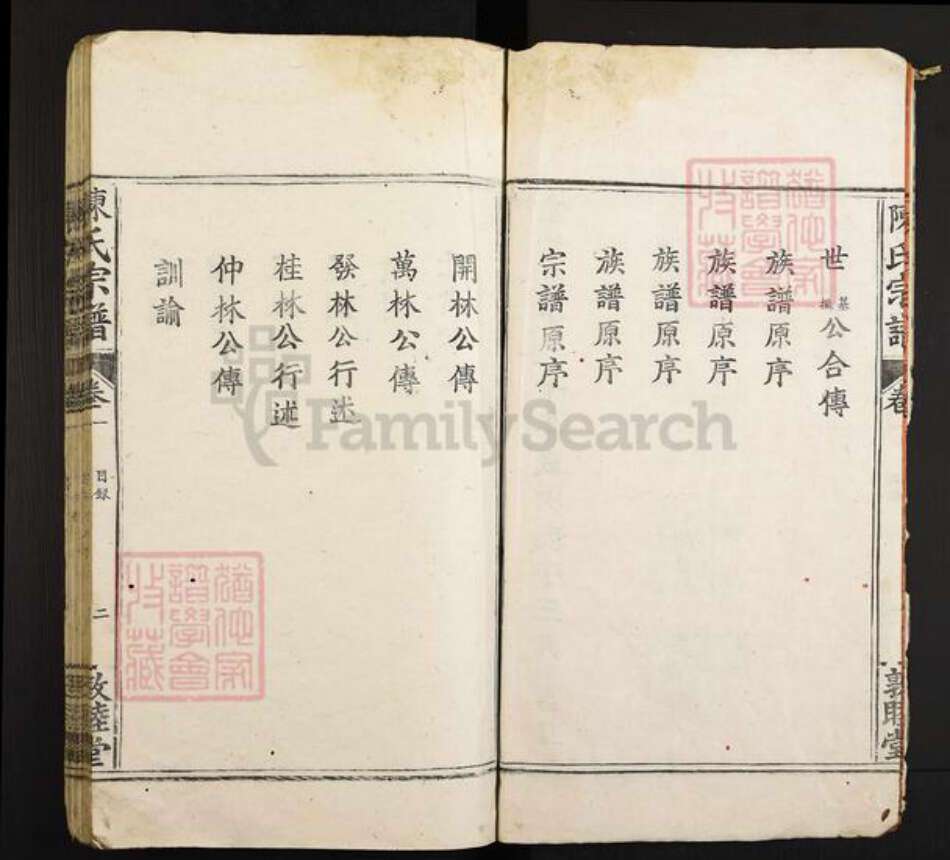 陳氏宗譜
卷
敦睦堂
世公合傳
族譜原序
族譜原序
族譜原序
族譜原序
宗譜原序
開林公傳
萬林公傳
發林公行述
桂林公行述
仲林公傳
訓諭
陳氏宗譜
卷一
目録
二
敦睦堂
猶他家
譜學會
收藏
猶他家
譜學會
收藏
FamilySearch